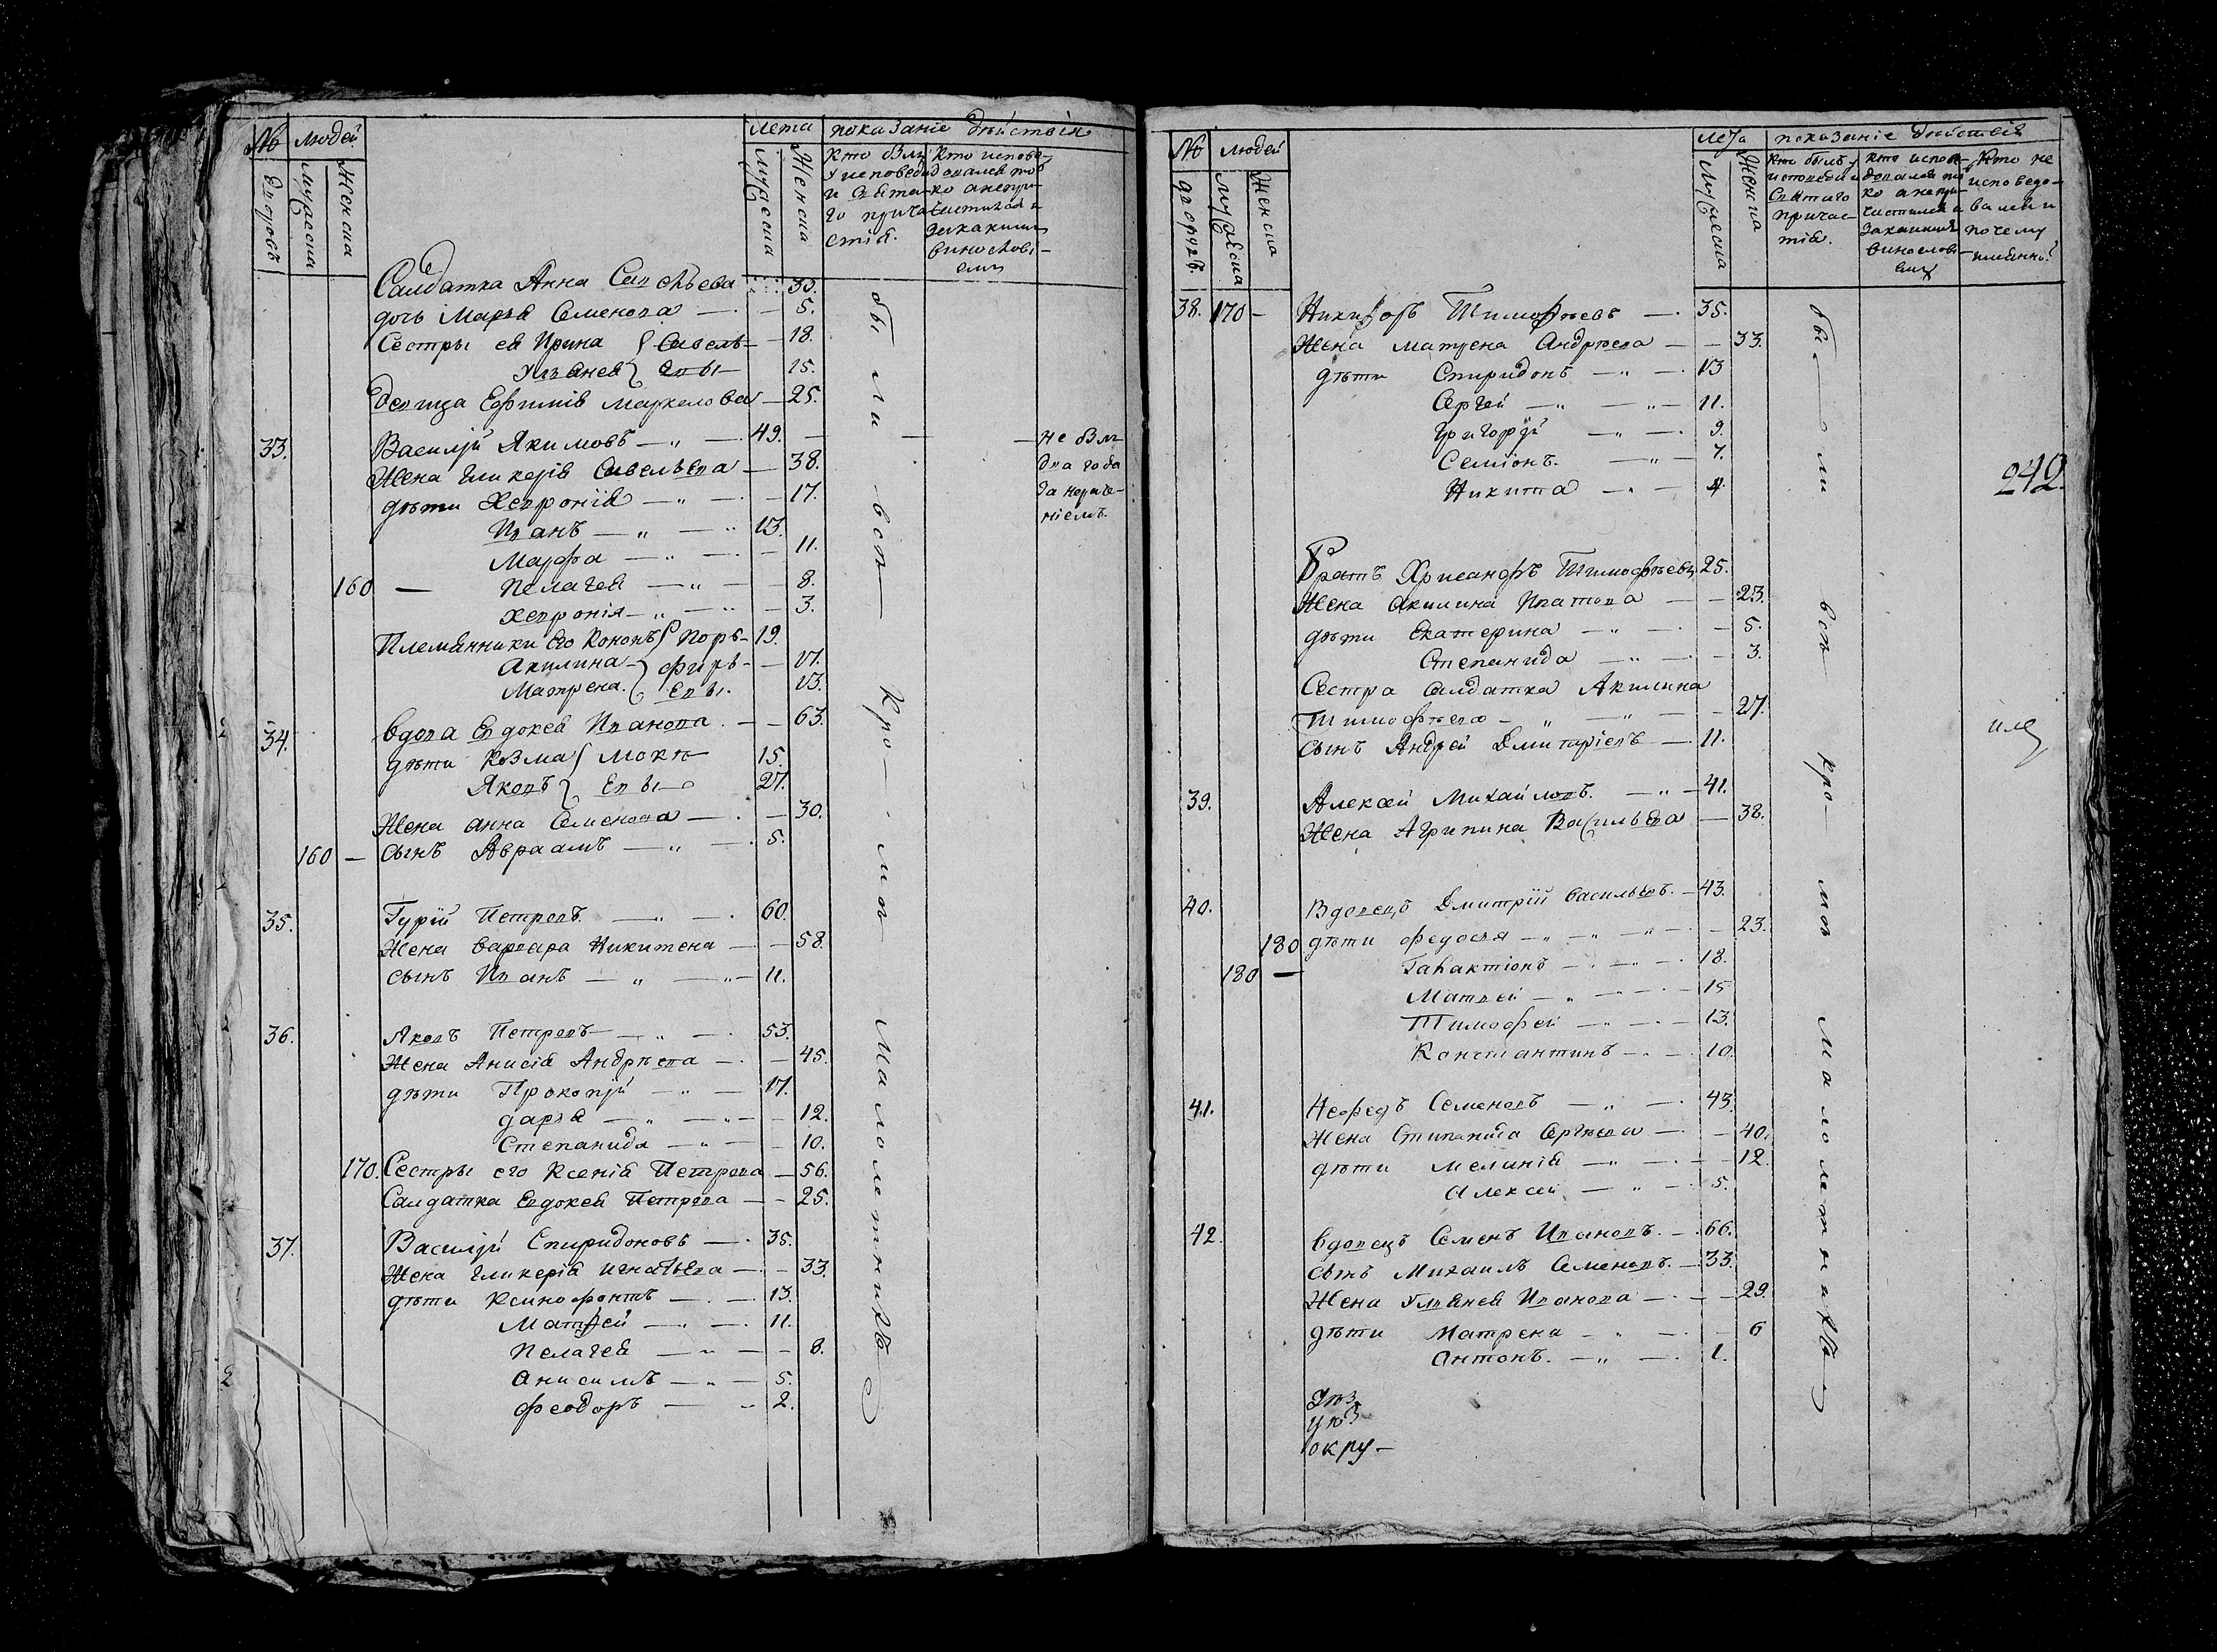 № людей лета показание действія
дворовъ мужеска женска мужеска женска
Кто был у исповеди и Свята-го прича-стія.
Кто испове-дался тов ко анепри-частился и закаким винослові-ем
Салдатка Анна Савельева 33.
дочь Марья Семенова — 5.
Сестры ея Ирина Савель- 18.
Ульянея евы 15.
Девица Ефимия Маркелова — 25.
33. Василій Якимовъ — 49. — не был
Жена Гликерія Савельева — 38. два года
дѣти Хевронія — 17. за нераче-
Иванъ — 13. ніемъ.
Марфа — 11.
160 — Пелагея — 8.
Хевронія — 3.
Племянники Его Кононъ Пор- 19.
Акилина фирь- 17.
Матрена. евы. 13.
34. вдова Евдокея Иванова. — 63.
дѣти Козма Моки 15.
Яковъ евы 27.
Жена анна Семенова — 30.
160 — Сынъ Авраамъ — 5.
35. Гурій Петровъ — 60.
Жена варвара Никитена — 58.
сынъ Иванъ — 11.
36. Яковъ Петровъ — 53.
Жена Анисія Андрѣева — 45.
дѣти Прокопій — 17.
дарья — 12.
Степанида — 10.
170. Сестры его Ксенія Петрова — 56.
Салдатка Евдокея Петрова — 25.
37. Василій Спиридоновъ — 35.
Жена Гликерія игнатьева — 33.
дѣти Ксинофонтъ — 13.
Матфей — 11.
Пелагея — 8.
Анисимъ — 5.
феодоръ — 2.
были всѣ кро-мѣ Малолетныхъ
№ людей лета показаніе действія
дворовъ. мужеска Женска мужеска Женска
Кто былъ у исповеди и Святаго причас-тія.
кто испове-довался то ко анепри-частился и закакимъ винослові-ем
Кто не исповедо-вался и почему имянно?
38. 170 — Никифоръ Тимофѣевъ — 35.
Жена матрена Андрѣева — 33.
дѣти Спиридонъ — 13
Сергей — 11.
Григорій — 9.
Семіонъ. — 7.
Никита — 4.
242.
Братъ Хрисанфъ Тимофѣевъ 25.
Жена акилина Ипатова — 23.
дѣти Екатерина — 5.
Степанида — 3.
Сестра салдатка Акилина
Тимофѣева — 27.
сынъ Андрей Дмитріевъ — 11.
39. Алексѣй Михайловъ. — 41.
Жена Агрипина Васильева — 38.
40. Вдовецъ Дмитрій васильевъ. — 43.
180 дѣти федосья — 23.
180 — Галактіонъ — 18.
Матвей — 15
Тимофей — 13.
Константинъ — 10.
41. Нефедъ Семеновъ — 43.
Жена Стипанида Сергѣева — 40.
дѣти мелания — 12.
Алексей — 5.
42. вдовецъ Семенъ Ивановъ. — 66.
сынъ Михаилъ Семеновъ. — 33.
Жена Ульянея Иванова — 29.
дѣти Матрена — 6
Антонъ. — 1.
окру-
были всѣ кро-мѣ малолетныхъ